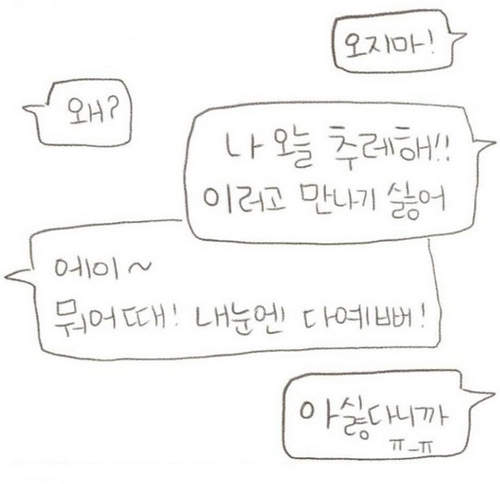 오지마!
왜?
나 오늘 추레해!!
이러고 만나기 싫어
에이~
뭐어때! 내눈엔 다예뻐!
아싫다니까
ㅠ_ㅠ